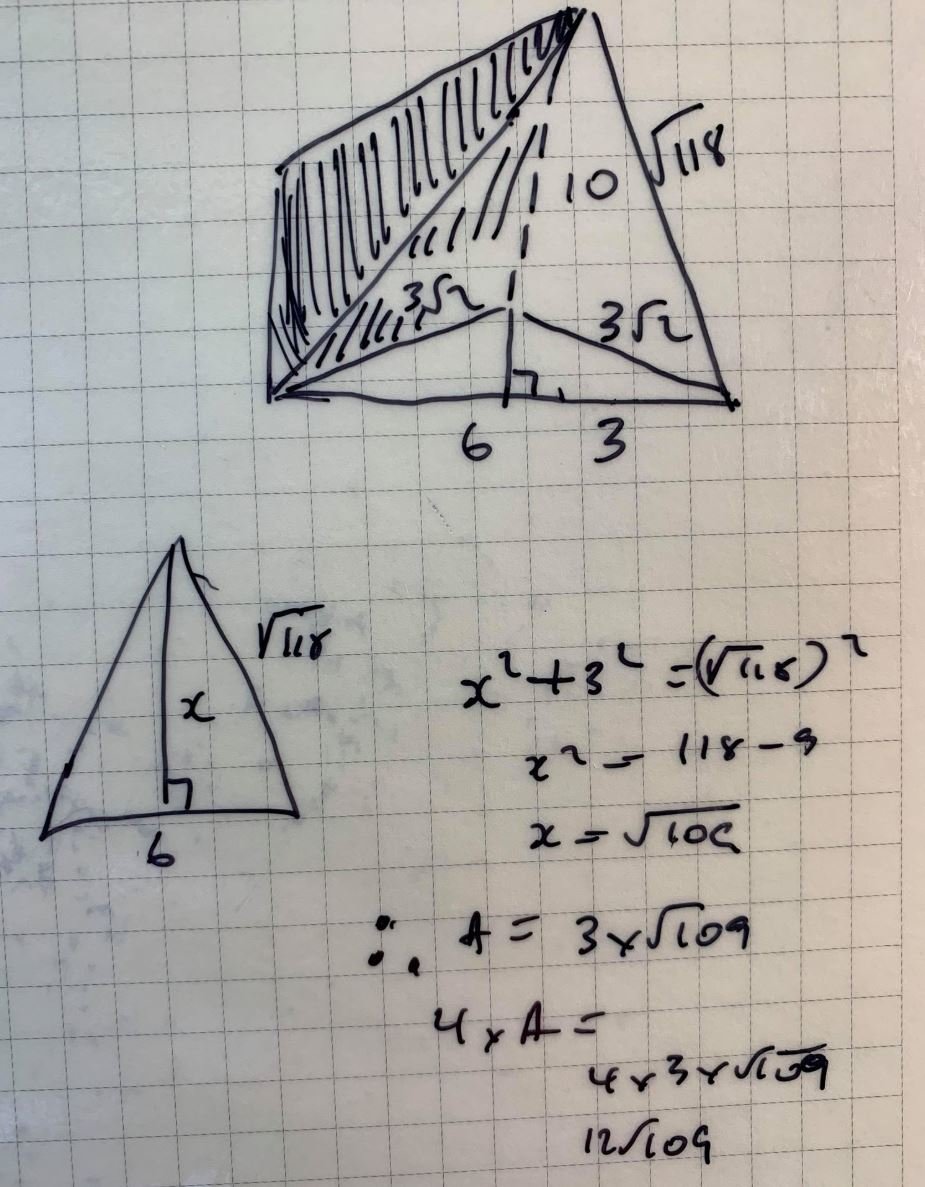 √118
10
3√2
3√2
6
3
√118
x
6
x² + 3² = (√118)²
x² = 118 - 9
x = √109
∴ A = 3 × √109
4 × A =
4 × 3 × √109
12√109